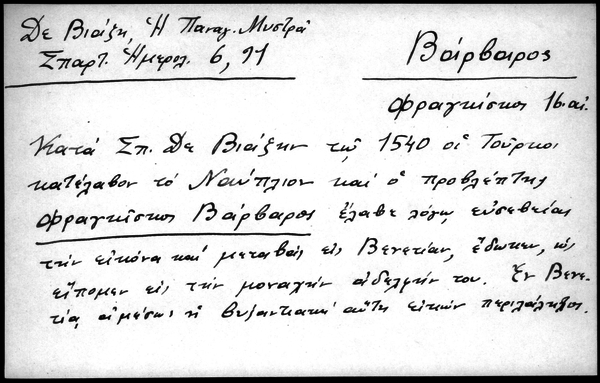 Δε Βιάζη, Ἡ Παναγ. Μυστρᾶ
Σπαρτ. Ἡμερολ. 6, 91
Βάρβαρος
Φραγκίσκος 16. αἰ.
Κατά Σπ. Δε Βιάζην τῷ 1540 οἱ Τοῦρκοι
κατέλαβον τό Ναύπλιον καί ὁ προβλέπτης
Φραγκῖσκος Βάρβαρος ἔλαβε λόγῳ εὐσεβείας
τήν εἰκόνα καί μεταβάς εἰς Βενετίαν, ἔδωκεν, ὡς
εἴπομεν εἰς τήν μοναχήν ἀδελφήν του. Ἐν Βενε-
τίᾳ ἀμέσως ἡ βυζαντιακή αὕτη εἰκών περιλάλητος.